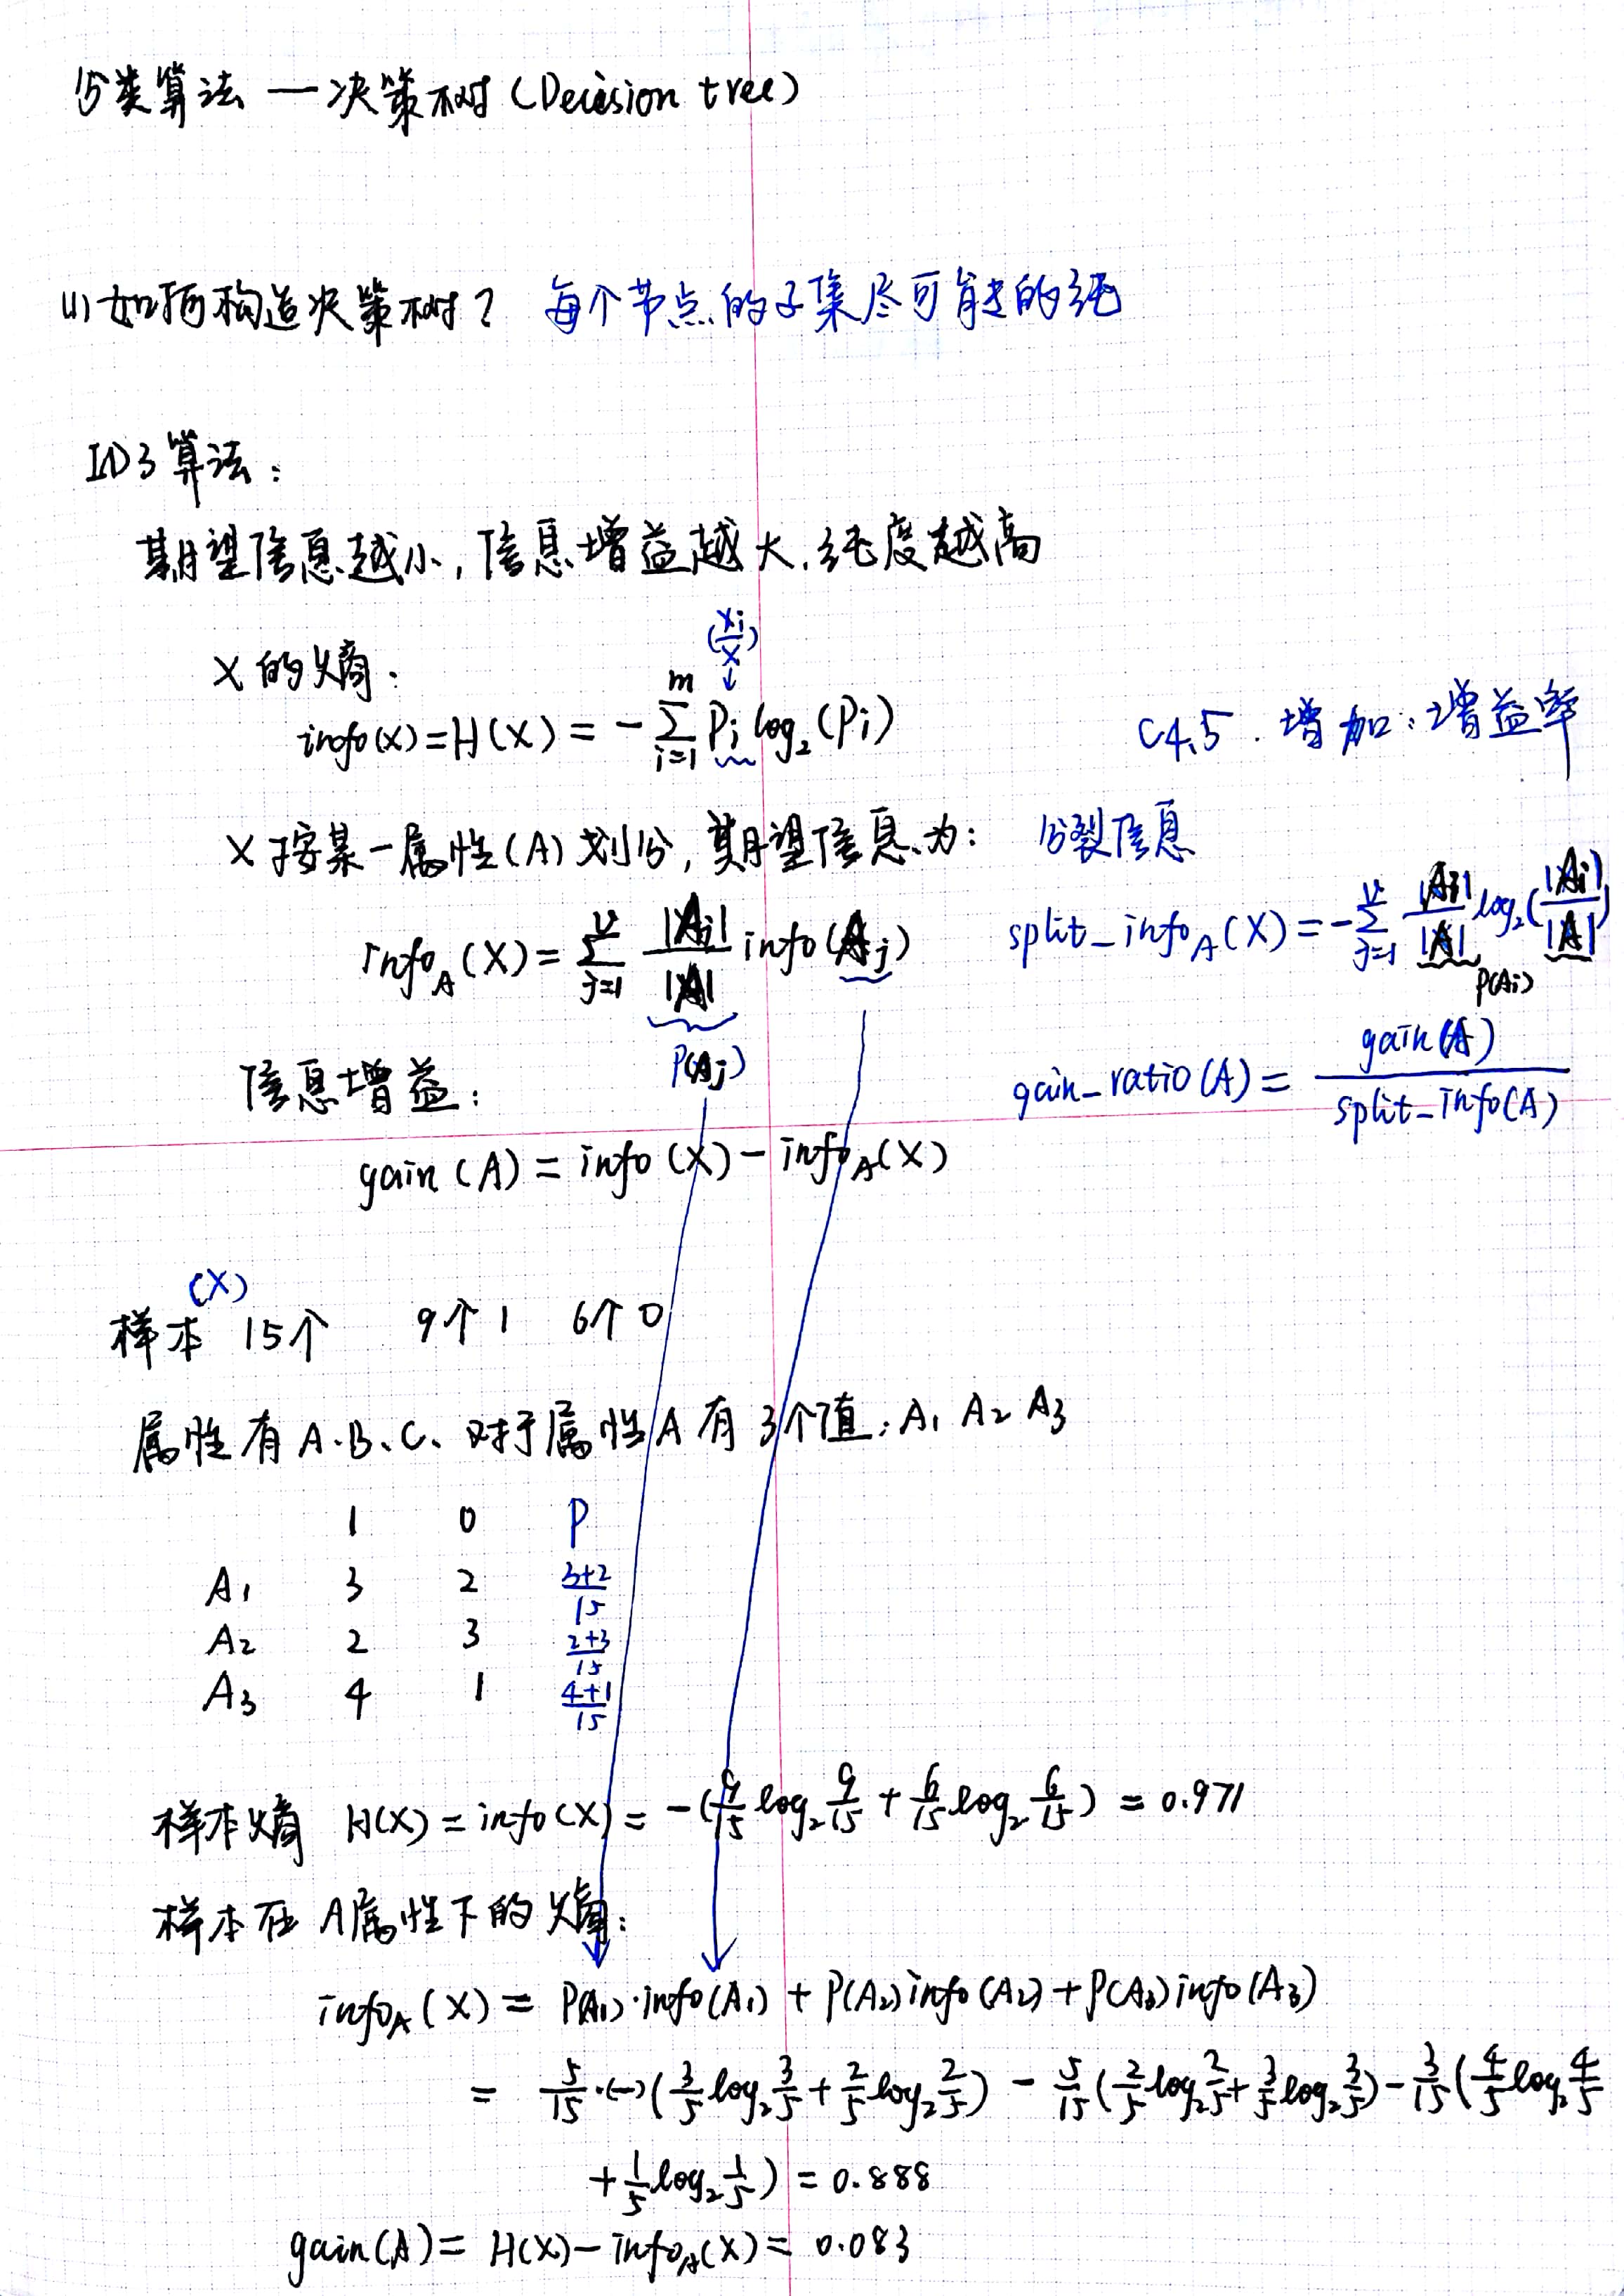 分类算法 — 决策树 (Decision tree)
(1) 如何构造决策树? 每个节点的子集尽可能的纯
ID3 算法:
期望信息越小, 信息增益越大, 纯度越高
(xi/x)
↓
X 的熵.
info(x) = H(X) = -∑_{i=1}^{m} Pi log₂(Pi)
C4.5 . 增加: 增益率
X 按某一属性(A) 划分, 期望信息为:
分裂信息
info_A(X) = ∑_{j=1}^{v} |Aj|/|A| info(Aj)
P(Aj)
split_info_A(X) = -∑_{j=1}^{v} |Aj|/|A| log₂(|Ai|/|A|)
P(Ai)
gain_ratio(A) = gain(A)/split_info(A)
信息增益:
gain(A) = info(X) - info_A(X)
(X)
样本 15个 9个1 6个0
属性有 A.B、C、对于属性A有3个值: A₁ A₂ A₃
1 0 P
A₁ 3 2 3+2/15
A₂ 2 3 2+3/15
A₃ 4 1 4+1/15
样本熵 H(X) = info(X) = -(9/15 log₂ 9/15 + 6/15 log₂ 6/15) = 0.971
样本在 A属性下的熵:
info_A(X) = P(A₁)·info(A₁) + P(A₂)info(A₂) + P(A₃)info(A₃)
= 5/15·(-)(3/5 log₂ 3/5 + 2/5 log₂ 2/5) - 5/15(2/5 log₂ 2/5 + 3/5 log₂ 3/5) - 3/15(4/5 log₂ 4/5
+ 1/5 log₂ 1/5) = 0.888
gain(A) = H(X) - info_A(X) = 0.083